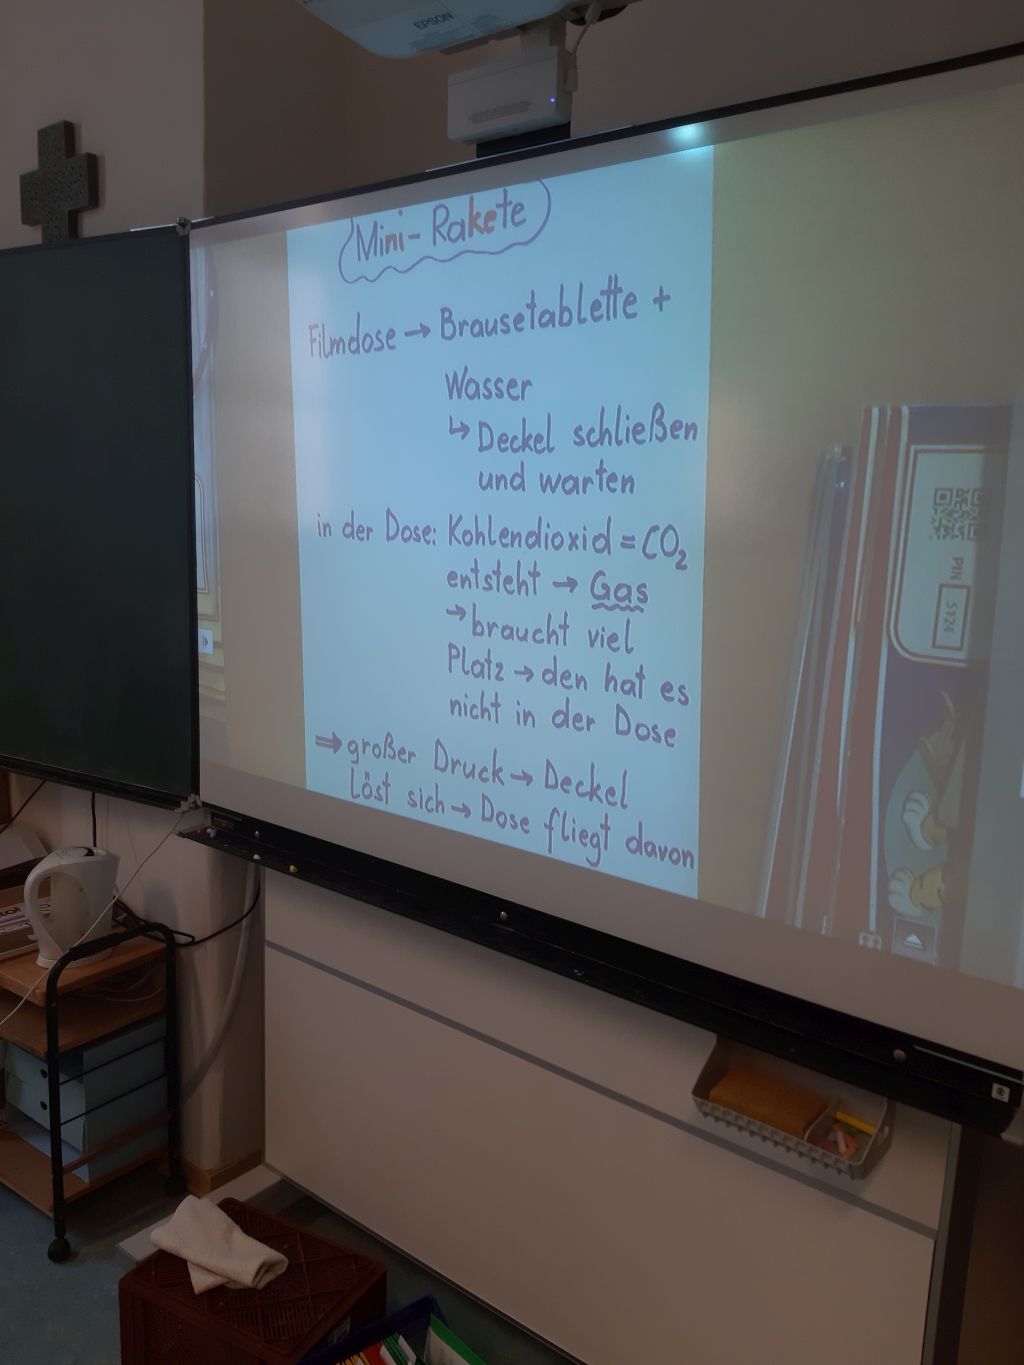 EPSON
Mini-Rakete
Filmdose → Brausetablette +
Wasser
↳ Deckel schließen
und warten
in der Dose: Kohlendioxid = CO₂
entsteht → Gas
→ braucht viel
Platz → den hat es
nicht in der Dose
⇒ großer Druck → Deckel
löst sich → Dose fliegt davon
PIN 5124